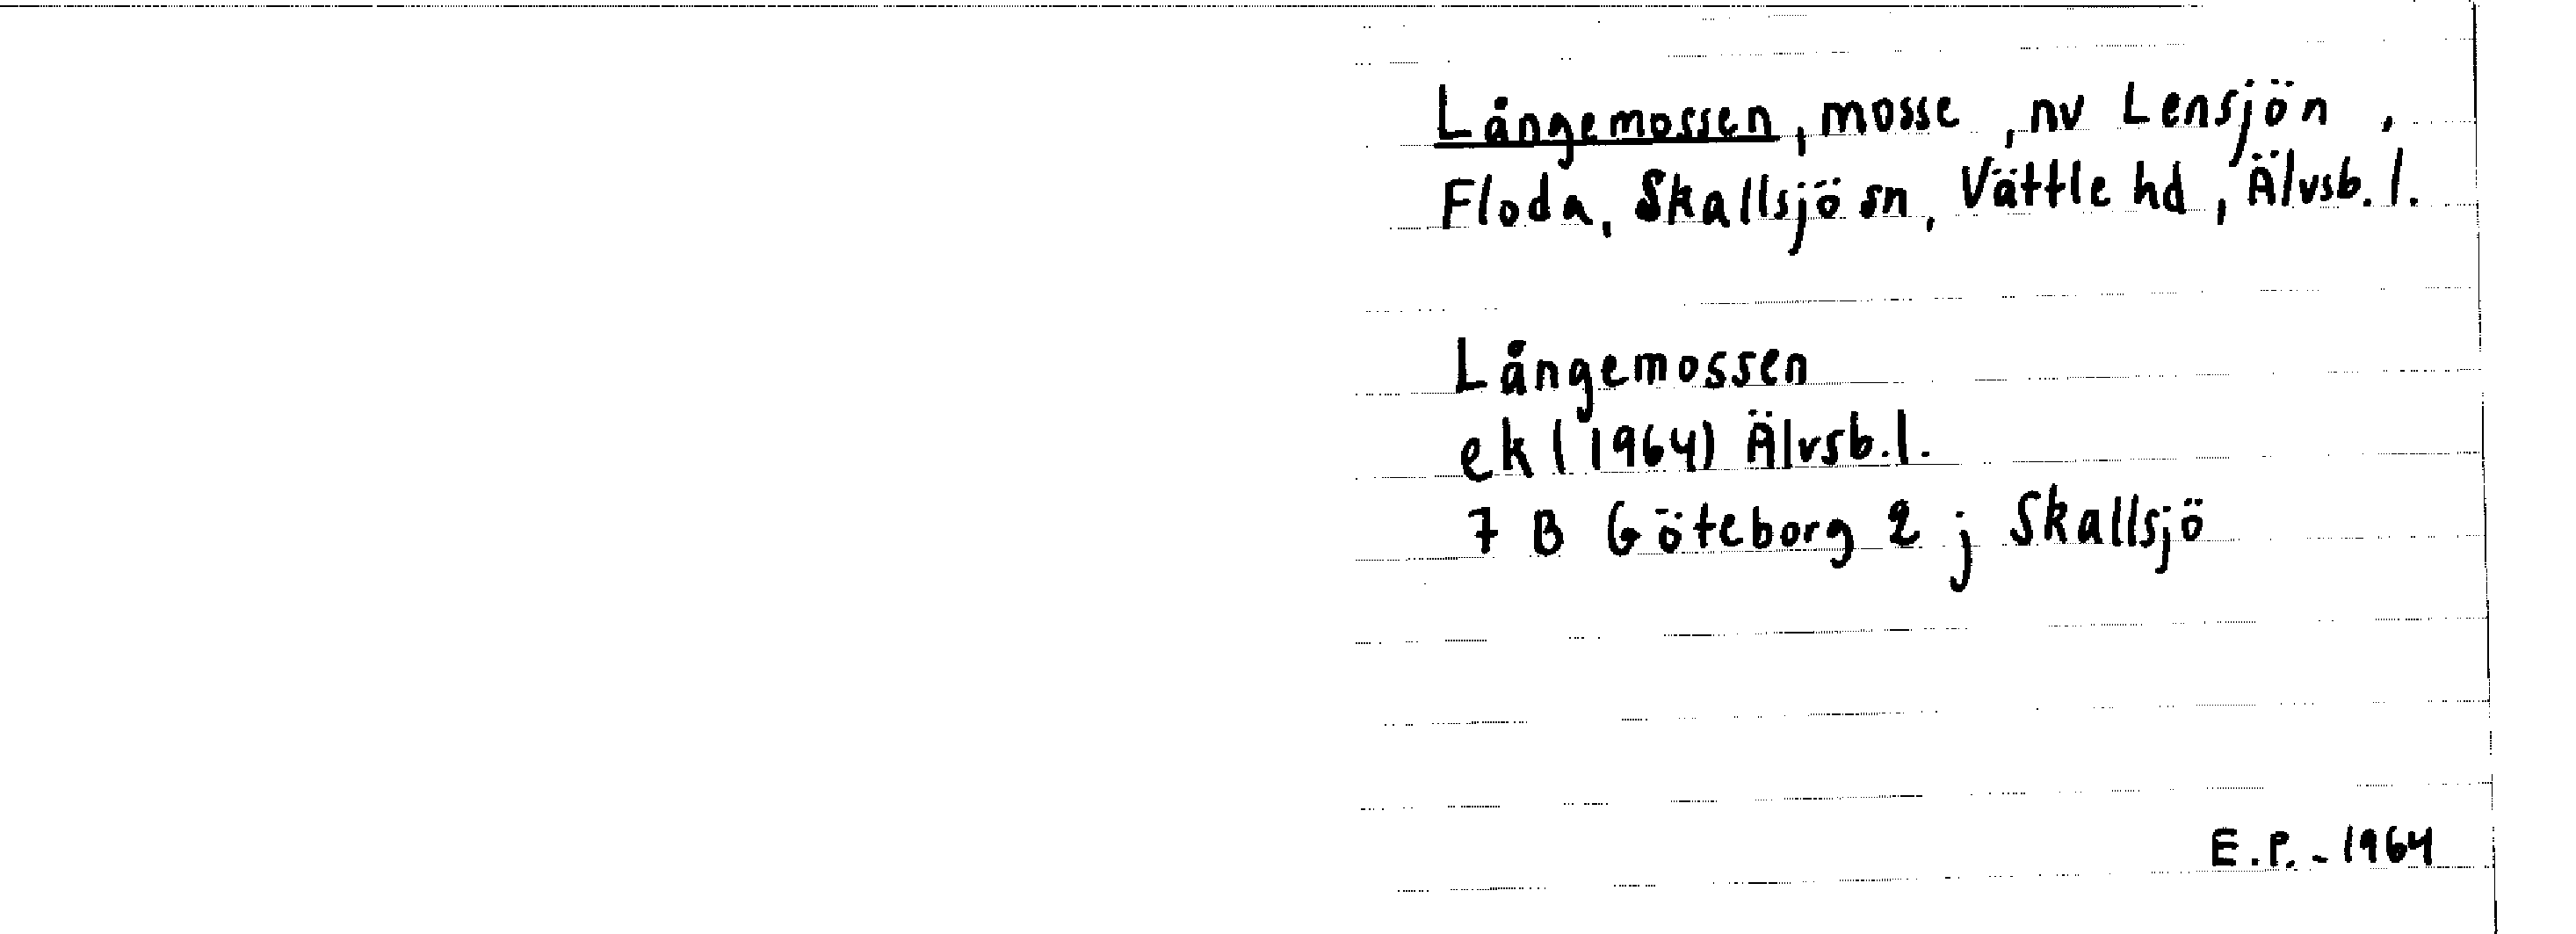 Långemossen, mosse, nv Lensjön,
Floda, Skallsjö sn, Vättle hd, Älvsb. l.
Långemossen
ek (1964) Älvsb. l.
7 B Göteborg 2 j Skallsjö
E.P. - 1964